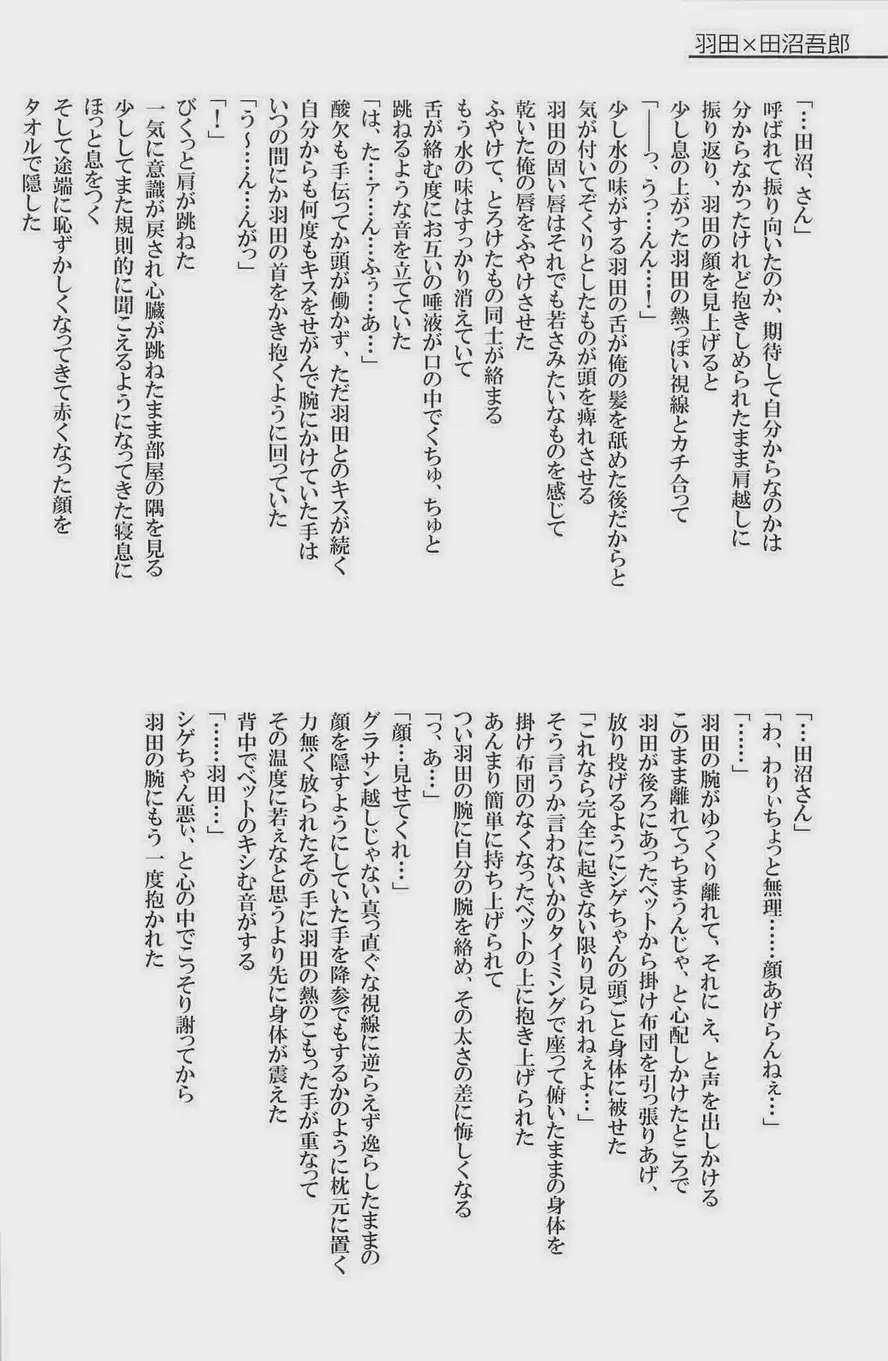 羽田×田沼吾郎
「…田沼、さん」
呼ばれて振り向いたのか、期待して自分からなのかは
分からなかったけれど抱きしめられたまま肩越しに
振り返り、羽田の顔を見上げると
少し息の上がった羽田の熱っぽい視線とカチ合って
「――っ、うっ…んん…！」
少し水の味がする羽田の舌が俺の髪を舐めた後だからと
気が付いてぞくりとしたものが頭を痺れさせる
羽田の固い唇はそれでも若さみたいなものを感じて
乾いた俺の唇をふやけさせた
ふやけて、とろけたもの同士が絡まる
もう水の味はすっかり消えていて
舌が絡む度にお互いの唾液が口の中でくちゅ、ちゅと
跳ねるような音を立てていた
「は、た…ァ…ん……ふぅ…あ…」
酸欠も手伝ってか頭が働かず、ただ羽田とのキスが続く
自分からも何度もキスをせがんで腕にかけていた手は
いつの間にか羽田の首をかき抱くように回っていた
「う～…ん…んがっ」
「！」
びくっと肩が跳ねた
一気に意識が戻され心臓が跳ねたまま部屋の隅を見る
少ししてまた規則的に聞こえるようになってきた寝息に
ほっと息をつく
そして途端に恥ずかしくなってきて赤くなった顔を
タオルで隠した
「…田沼さん」
「わ、わりぃちょっと無理……顔あげらんねぇ…」
「……」
羽田の腕がゆっくり離れて、それに え、と声を出しかける
このまま離れてっちまうんじゃ、と心配しかけたところで
羽田が後ろにあったベットから掛け布団を引っ張りあげ、
放り投げるようにシゲちゃんの頭ごと身体に被せた
「これなら完全に起きない限り見られねぇよ…」
そう言うか言わないかのタイミングで座って俯いたままの身体を
掛け布団のなくなったベットの上に抱き上げられた
あんまり簡単に持ち上げられて
つい羽田の腕に自分の腕を絡め、その太さの差に悔しくなる
「っ、あ…」
「顔…見せてくれ…」
グラサン越しじゃない真っ直ぐな視線に逆らえず逸らしたままの
顔を隠すようにしていた手を降参でもするかのように枕元に置く
力無く放られたその手に羽田の熱のこもった手が重なって
その温度に若ぇなと思うより先に身体が震えた
背中でベットのキシむ音がする
「……羽田…」
シゲちゃん悪ぃ、と心の中でこっそり謝ってから
羽田の腕にもう一度抱かれた